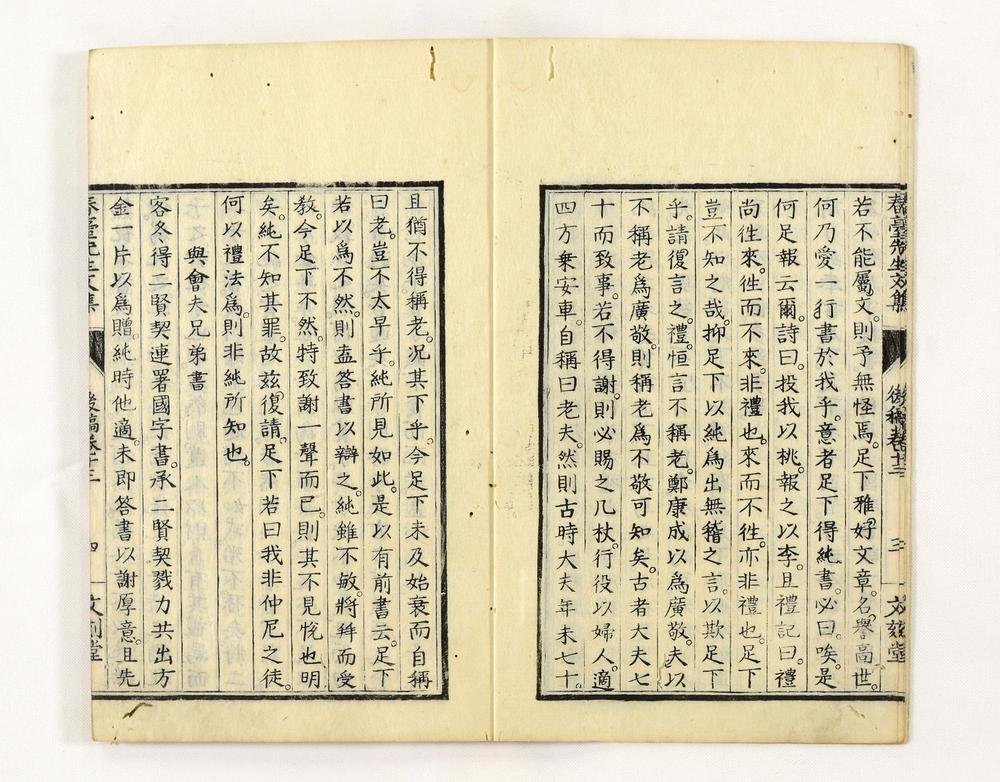 若不能屬文。則予無怪焉。足下雅好文章。名譽高世。
何乃愛一行書於我乎。意者足下得純書。必曰。唉。是
何足報云爾。詩曰。投我以桃。報之以李。且禮記曰。禮
尚徃來。徃而不來。非禮也。來而不徃。亦非禮也。足下
豈不知之哉。抑足下以純爲出無稽之言。以欺足下
乎。請復言之。禮。恒言不稱老。鄭康成以爲廣敬。夫以
不稱老爲廣敬。則稱老爲不敬可知矣。古者大夫七
十而致事。若不得謝。則必賜之几杖。行役以婦人。適
四方乗安車。自稱曰老夫。然則古時大夫年未七十。
且猶不得稱老。况其下乎。今足下未及始衰而自稱
曰老。豈不太早乎。純所見如此。是以有前書云。足下
若以爲不然。則盍答書以辯之。純雖不敏。將拜而受
敎。今足下不然。特致謝一聲而已。則其不見悅也明
矣。純不知其罪。故玆復請。足下若曰我非仲尼之徒。
何以禮法爲。則非純所知也。
與會夫兄弟書
客冬得二賢契連署國字書。承二賢契戮力共出方
金一片以爲贈。純時他適。未即答書以謝厚意。且先
春臺先生文集
後稿卷十三
四